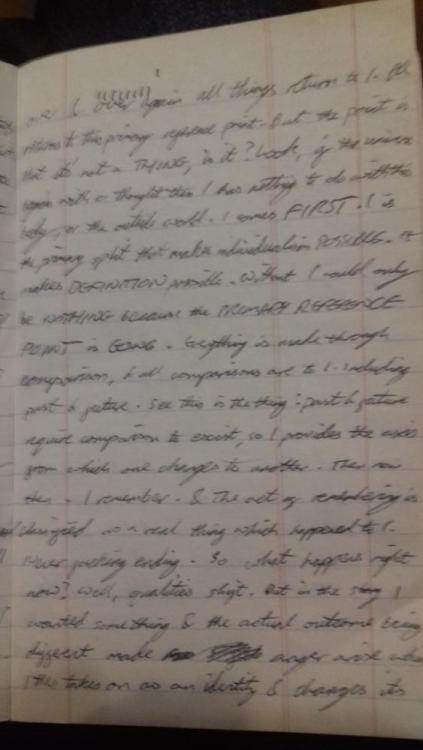 over & over again all things return to I. All
return to this primary reference point. But the point is
that it's not a THING, is it? Look, if the universe
came with a thought then I has nothing to do with the
body, or the outside world. I comes FIRST. I is
the primary split that makes individualism POSSIBLE. It
makes DEFINITION possible. Without I could only
be NOTHING because the PRIMARY REFERENCE
POINT is GONE. Everything is made through
comparison, & all comparisons are to I - including
past & future. See this is the thing: past & future
require comparison to exist, so I provides the
from which one changes to another. Then now
then. I remember. & The act of remembering is
designed as a real thing which happened to I.
never fucking ending. So what happens right
now? Well, qualities shift. But in the story I
wanted something & the actual outcome being
different made anger arise
I then takes on as an identity & changes its